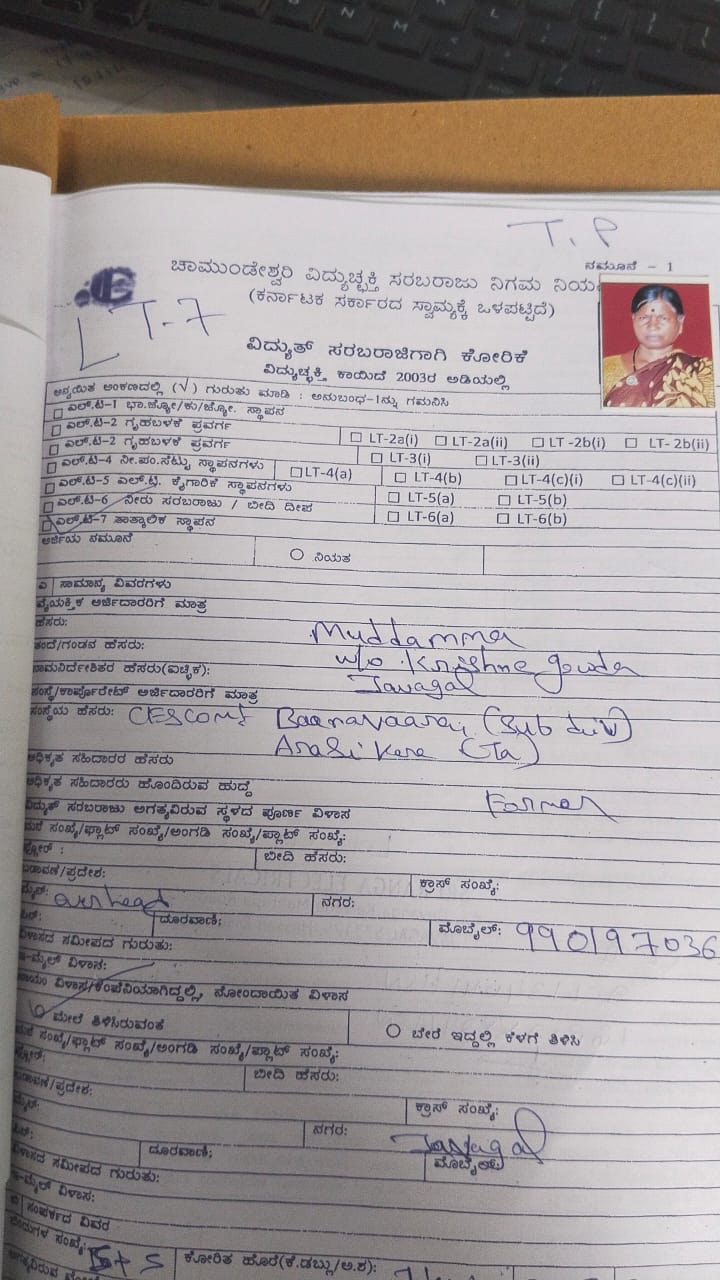 T. P
ನಮೂನೆ - 1
ಚಾಮುಂಡೇಶ್ವರಿ ವಿದ್ಯುಚ್ಛಕ್ತಿ ಸರಬರಾಜು ನಿಗಮ ನಿಯ
(ಕರ್ನಾಟಕ ಸರ್ಕಾರದ ಸ್ವಾಮ್ಯಕ್ಕೆ ಒಳಪಟ್ಟಿದೆ)
LT-7
ವಿದ್ಯುತ್ ಸರಬರಾಜಿಗಾಗಿ ಕೋರಿಕೆ
ವಿದ್ಯುಚ್ಛಕ್ತಿ ಕಾಯಿದೆ 2003ರ ಅಡಿಯಲ್ಲಿ
ಅನ್ವಯಿತ ಅಂಕಣದಲ್ಲಿ (√) ಗುರುತು ಮಾಡಿ : ಅನುಬಂಧ-1ನ್ನು ಗಮನಿಸಿ
ಎಲ್.ಟಿ-1 ಭಾ.ಜ್ಯೋ/ಕು/ಜ್ಯೋ. ಸ್ಥಾಪನ
ಎಲ್.ಟಿ-2 ಗೃಹಬಳಕೆ ಪ್ರವರ್ಗ LT-2a(i) LT-2a(ii) LT -2b(i) LT- 2b(ii)
ಎಲ್.ಟಿ-2 ಗೃಹಬಳಕೆ ಪ್ರವರ್ಗ LT-3(i) LT-3(ii)
ಎಲ್.ಟಿ-4 ನೀ.ಪಂ.ಸೆಟ್ಟು ಸ್ಥಾಪನಗಳು LT-4(a) LT-4(b) LT-4(c)(i) LT-4(c)(ii)
ಎಲ್.ಟಿ-5 ಎಲ್.ಟ್ರಿ. ಕೈಗಾರಿಕೆ ಸ್ಥಾಪನಗಳು LT-5(a) LT-5(b)
ಎಲ್.ಟಿ-6 ನೀರು ಸರಬರಾಜು / ಬೀದಿ ದೀಪ LT-6(a) LT-6(b)
ಎಲ್.ಟಿ-7 ತಾತ್ಕಾಲಿಕ ಸ್ಥಾಪನ
ಅರ್ಜಿಯ ನಮೂನೆ ನಿಯತ
ಎ ಸಾಮಾನ್ಯ ವಿವರಗಳು
ವೈಯಕ್ತಿಕ ಅರ್ಜಿದಾರರಿಗೆ ಮಾತ್ರ
ಹೆಸರು: Muddamma
ತಂದೆ/ಗಂಡನ ಹೆಸರು: w/o Krishne gowda
ನಾಮನಿರ್ದೇಶಿತರ ಹೆಸರು(ಐಚ್ಛಿಕ): Javagal
ಸಂಸ್ಥೆ/ಕಾರ್ಪೊರೇಟ್ ಅರ್ಜಿದಾರರಿಗೆ ಮಾತ್ರ
ಸಂಸ್ಥೆಯ ಹೆಸರು: (Sub div)
ಅಧಿಕೃತ ಸಹಿದಾರರ ಹೆಸರು Arasikere (Ta)
ಅಧಿಕೃತ ಸಹಿದಾರರು ಹೊಂದಿರುವ ಹುದ್ದೆ
ವಿದ್ಯುತ್ ಸರಬರಾಜು ಅಗತ್ಯವಿರುವ ಸ್ಥಳದ ಪೂರ್ಣ ವಿಳಾಸ Farmer
ಮನೆ ಸಂಖ್ಯೆ/ಫ್ಲಾಟ್ ಸಂಖ್ಯೆ/ಅಂಗಡಿ ಸಂಖ್ಯೆ/ಪ್ಲಾಟ್ ಸಂಖ್ಯೆ:
ಫ್ಲೋರ್ : ಬೀದಿ ಹೆಸರು:
ಬಡಾವಣೆ/ಪ್ರದೇಶ: ಕ್ರಾಸ್ ಸಂಖ್ಯೆ:
ನಗರ:
ಪಿನ್: ದೂರವಾಣಿ: ಮೊಬೈಲ್: 990197036
ವಿಳಾಸದ ಸಮೀಪದ ಗುರುತು:
ಇ-ಮೈಲ್ ವಿಳಾಸ:
ಖಾಯಂ ವಿಳಾಸ/ಕಂಪೆನಿಯಾಗಿದ್ದಲ್ಲಿ, ನೋಂದಾಯಿತ ವಿಳಾಸ
ಮೇಲೆ ತಿಳಿಸಿರುವಂತೆ ಬೇರೆ ಇದ್ದಲ್ಲಿ ಕೆಳಗೆ ತಿಳಿಸಿ
ಮನೆ ಸಂಖ್ಯೆ/ಫ್ಲಾಟ್ ಸಂಖ್ಯೆ/ಅಂಗಡಿ ಸಂಖ್ಯೆ/ಪ್ಲಾಟ್ ಸಂಖ್ಯೆ:
ಫ್ಲೋರ್: ಬೀದಿ ಹೆಸರು:
ಬಡಾವಣೆ/ಪ್ರದೇಶ: ಕ್ರಾಸ್ ಸಂಖ್ಯೆ:
ನಗರ: Javagal
ಪಿನ್: ದೂರವಾಣಿ: ಮೊಬೈಲ್:
ವಿಳಾಸದ ಸಮೀಪದ ಗುರುತು:
ಇ-ಮೈಲ್ ವಿಳಾಸ:
ಸಂಪರ್ಕದ ವಿವರ
ಕೋರಿತ ಹೊರೆ(ಕೆ.ಡಬ್ಲು/ಅ.ಶ):